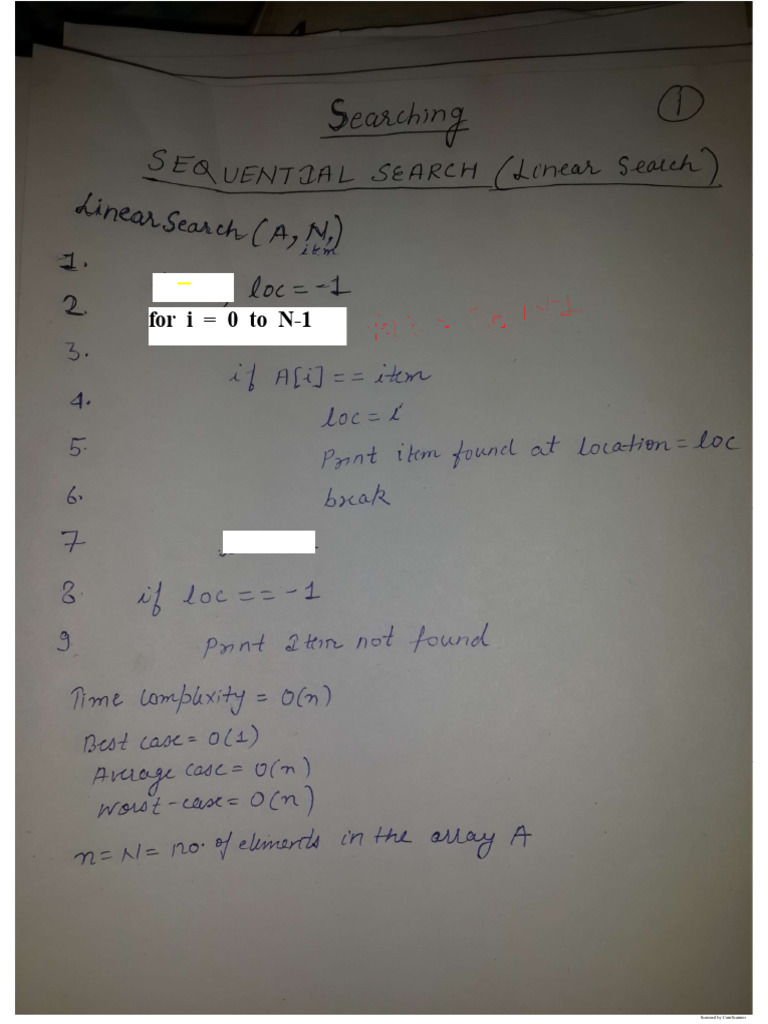 Searching
1
SEQUENTIAL SEARCH (Linear Search)
LinearSearch (A, N, item)
1.
loc = -1
2. for i = 0 to N-1
3. if A[i] == item
4. loc = i
5. Print item found at location = loc
6. break
7
8. if loc == -1
9 Print Item not found
Time complexity = O(n)
Best case = O(1)
Average case = O(n)
Worst-case = O(n)
n = N = no. of elements in the array A
Scanned by CamScanner